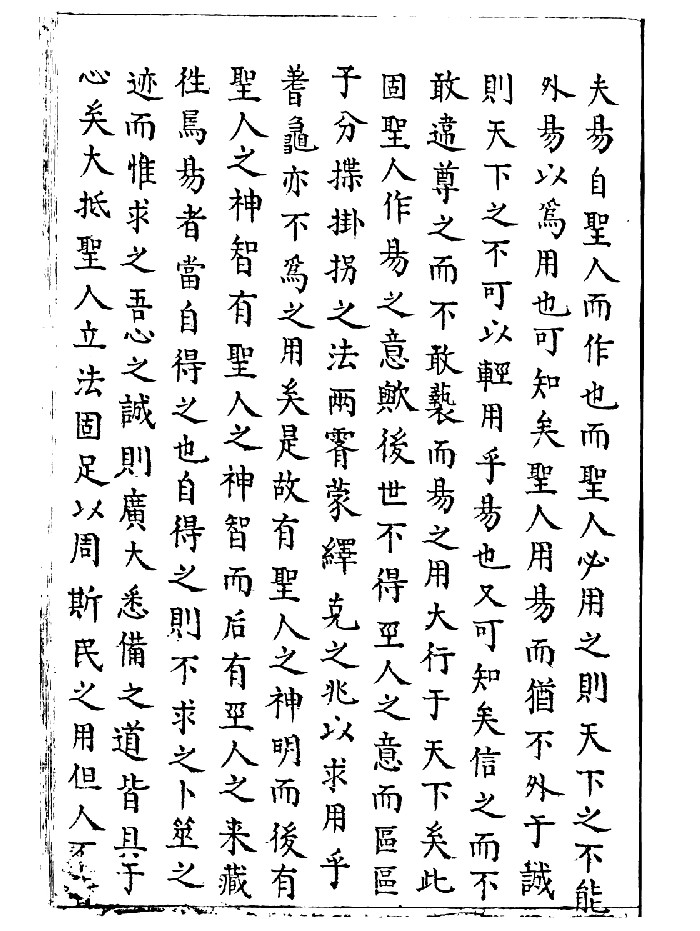 夫易自聖人而作也而聖人必用之則天下之不能
外易以爲用也可知矣聖人用易而猶不外于誠
則天下之不可以輕用乎易也又可知矣信之而不
敢違尊之而不敢褻而易之用大行于天下矣此
固聖人作易之意歟後世不得聖人之意而區區
于分揲掛拐之法兩霽蒙繹克之兆以求用乎
蓍龜亦不爲之用矣是故有聖人之神明而後有
聖人之神智有聖人之神智而后有聖人之来藏
徃焉易者當自得之也自得之則不求之卜筮之
迹而惟求之吾心之誠則廣大悉備之道皆具于
心矣大抵聖人立法固足以周斯民之用但人